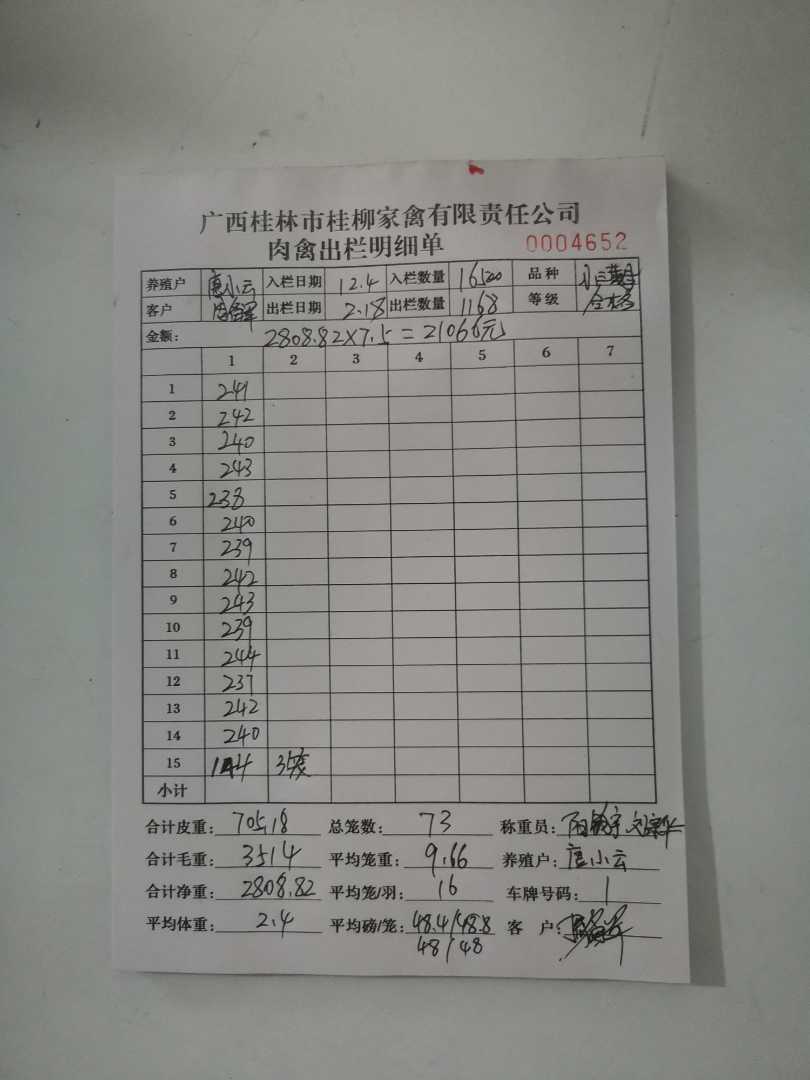 广西桂林市桂柳家禽有限责任公司
肉禽出栏明细单 0004652
养殖户 唐小云 入栏日期 12.4 入栏数量 16500 品种
客户 出栏日期 2.18 出栏数量 1168 等级 合格
金额: 2808.82×7.5=21066元
1 2 3 4 5 6 7
1 241
2 242
3 240
4 243
5 238
6 240
7 239
8 242
9 243
10 239
11 244
12 237
13 242
14 240
15 144
小计
合计皮重: 705.18 总笼数: 73 称重员:
合计毛重: 3514 平均笼重: 9.66 养殖户: 唐小云
合计净重: 2808.82 平均笼/羽: 16 车牌号码: 1
平均体重: 2.4 平均磅/笼: 48.4/48.8 客 户:
48/48